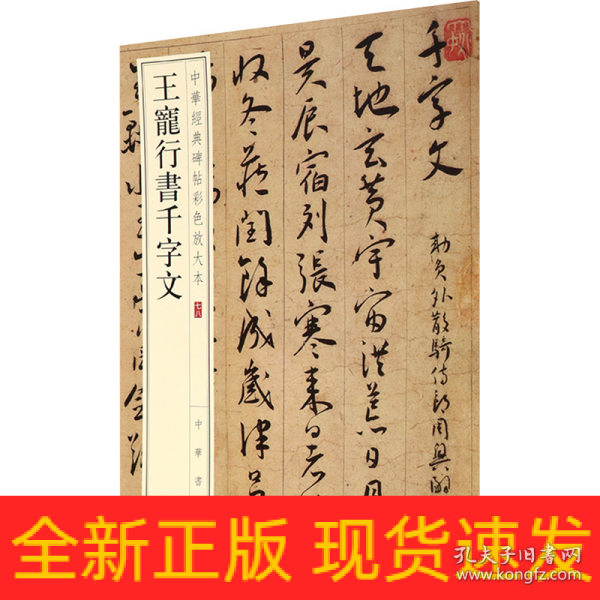 千字文
勅員外散騎侍郎周興嗣
天地玄黄宇宙洪荒日月
昃辰宿列張寒来暑
收冬蔵閏餘成歲律吕
中華經典碑帖彩色放大本
七八
王寵行書千字文
中華書
全新正版 现货速发
孔夫子旧书网
www.kongfz.com